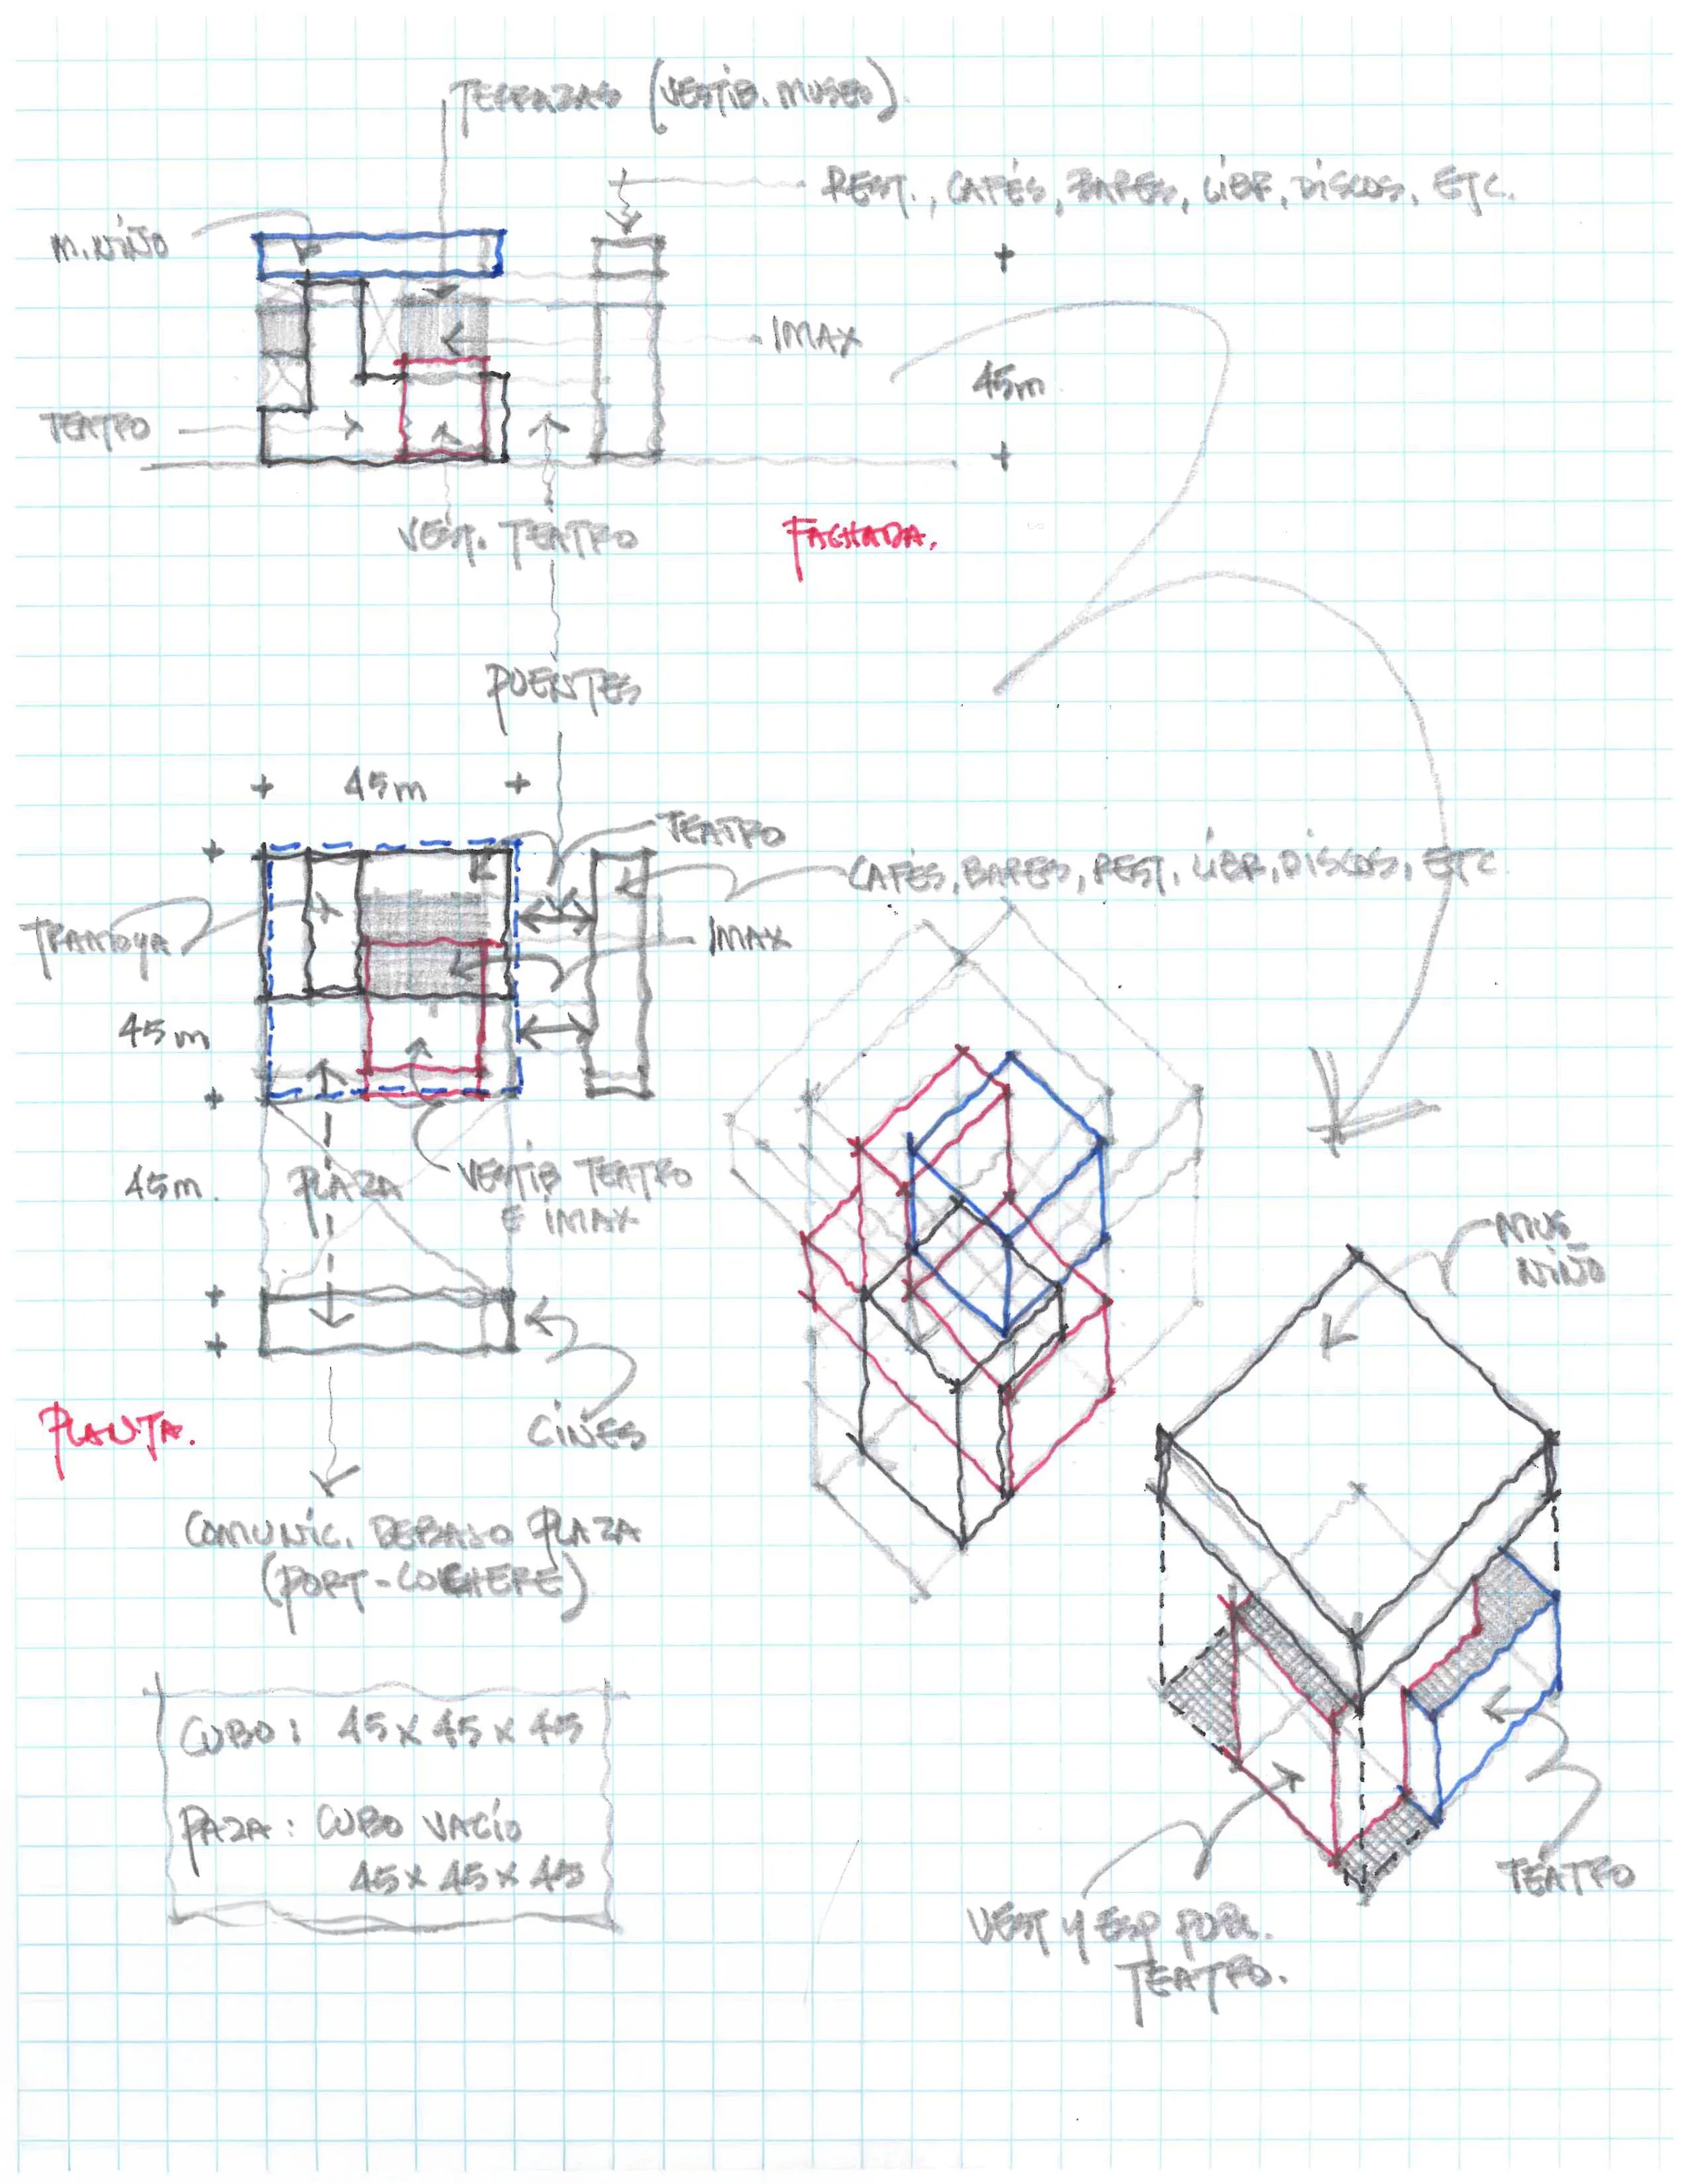 TERRAZAS (VESTIB. MUSEO).
REST., CAFÉS, BARES, LIBR, DISCOS, ETC.
M. NIÑO
IMAX
45m
TEATRO
VEST. TEATRO
FACHADA.
PUENTES
45m
TEATRO
CAFÉS, BARES, REST, LIBR, DISCOS, ETC
TRAMOYA
IMAX
45m
45m.
PLAZA
VESTIB TEATRO
E IMAX
MUS
NIÑO
PLANTA.
CINES
COMUNIC. DEBAJO PLAZA
(PORT-COCHERE)
CUBO: 45 x 45 x 45
PAZA: CUBO VACÍO
45 x 45 x 45
TEATRO
VEST Y ESP PUBL.
TEATRO.